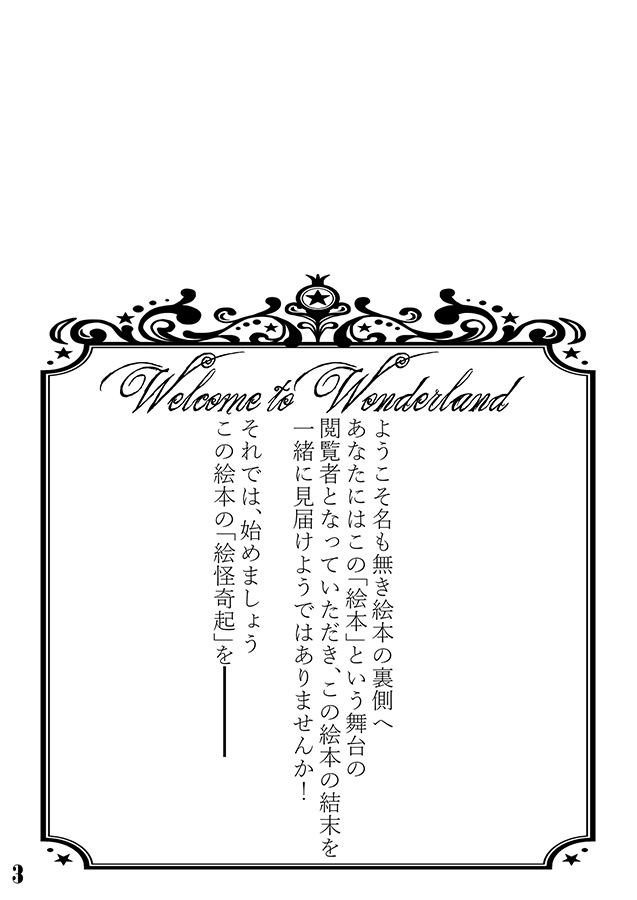 Welcome to Wonderland
ようこそ名も無き絵本の裏側へ
あなたにはこの「絵本」という舞台の
閲覧者となっていただき、この絵本の結末を
一緒に見届けようではありませんか！
それでは、始めましょう
この絵本の「絵怪奇起」を――――
3